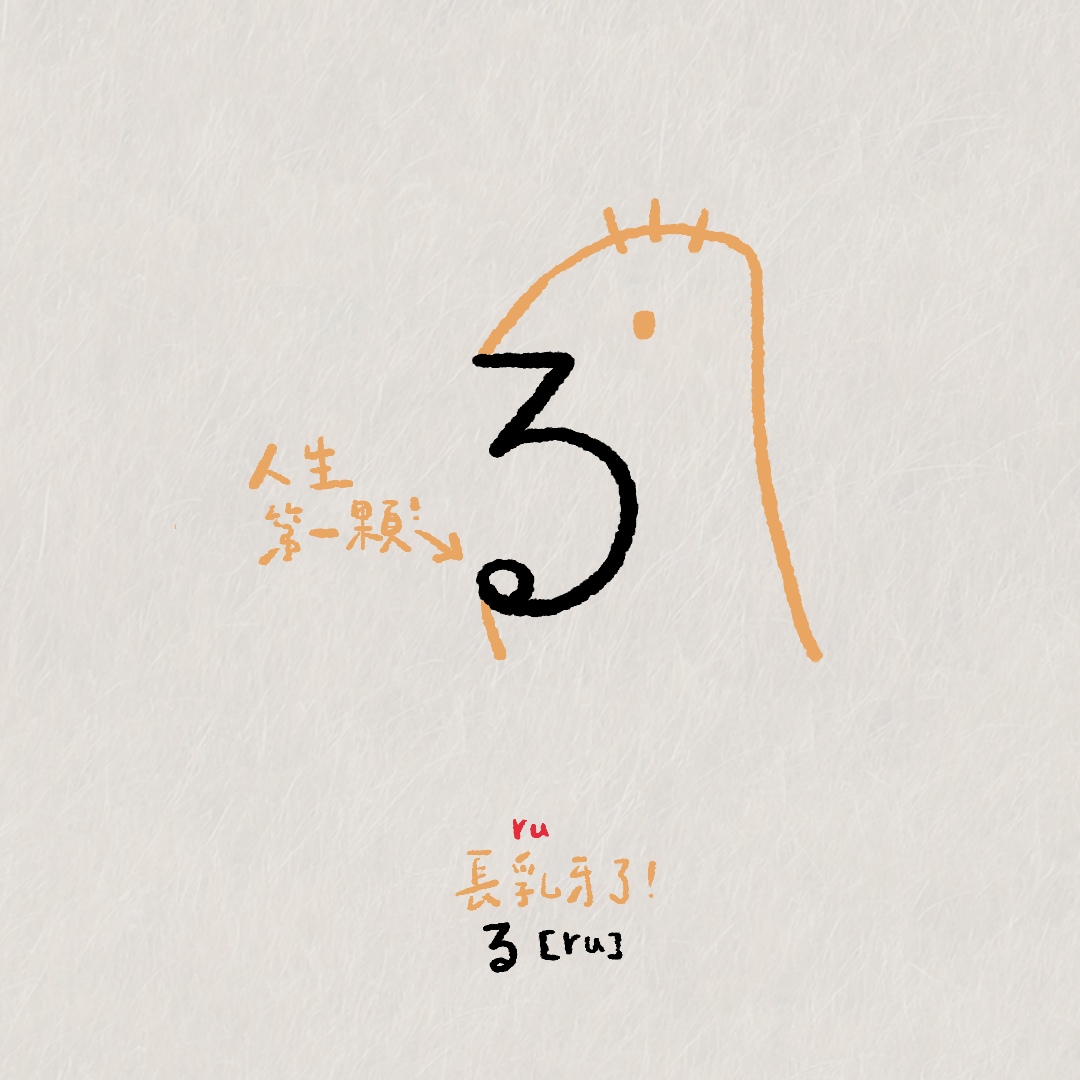 る
人生
第一顆!
ru
長乳牙了!
る [ru]